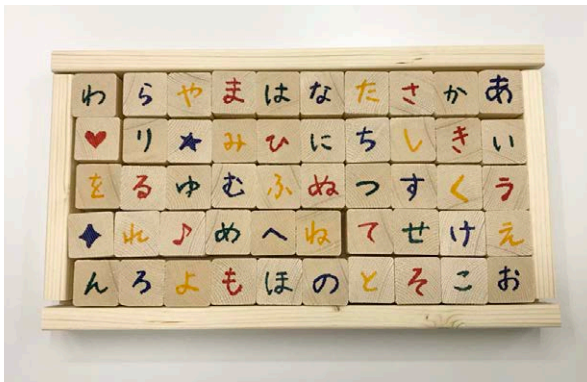 わらやまはなたさかあ
♥り★みひにちしきい
をるゆむふぬつすくう
✦れ♪めへねてせけえ
んろよもほのとそこお